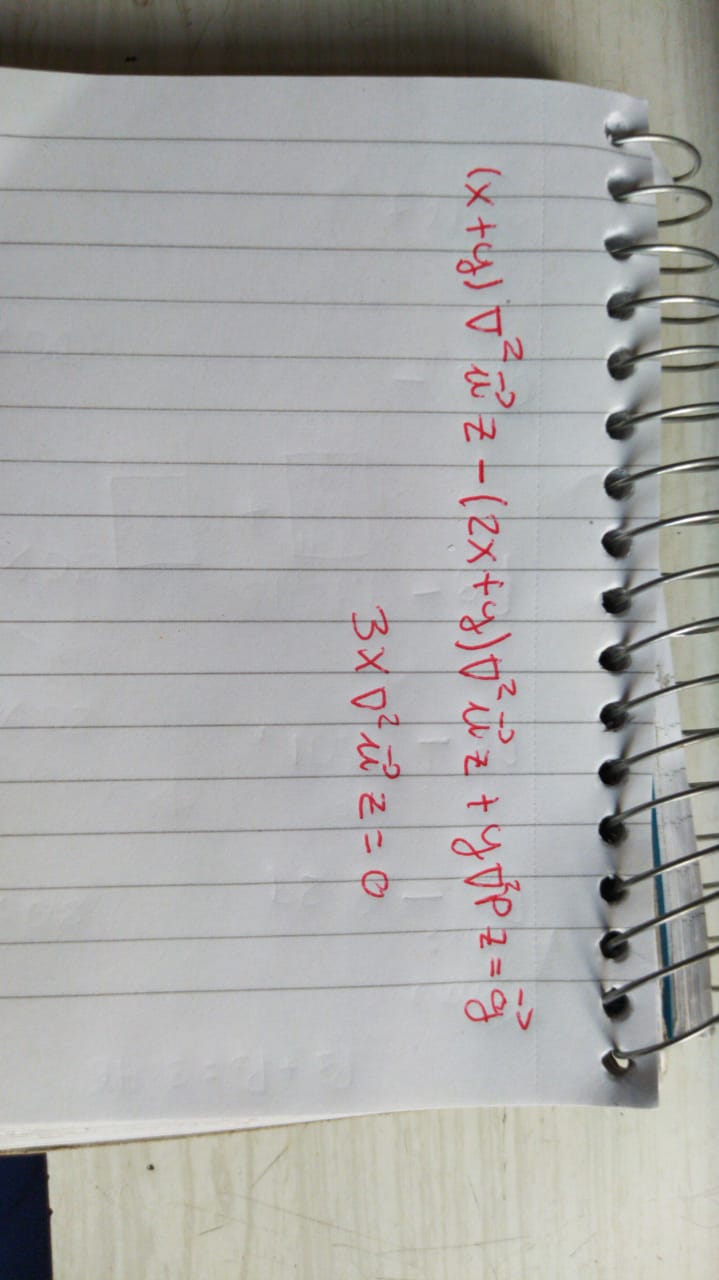 (x+y)∇²u⃗z-(2x+y)∇²u⃗z+y∇²pz=g⃗
3x∇²u⃗z=0